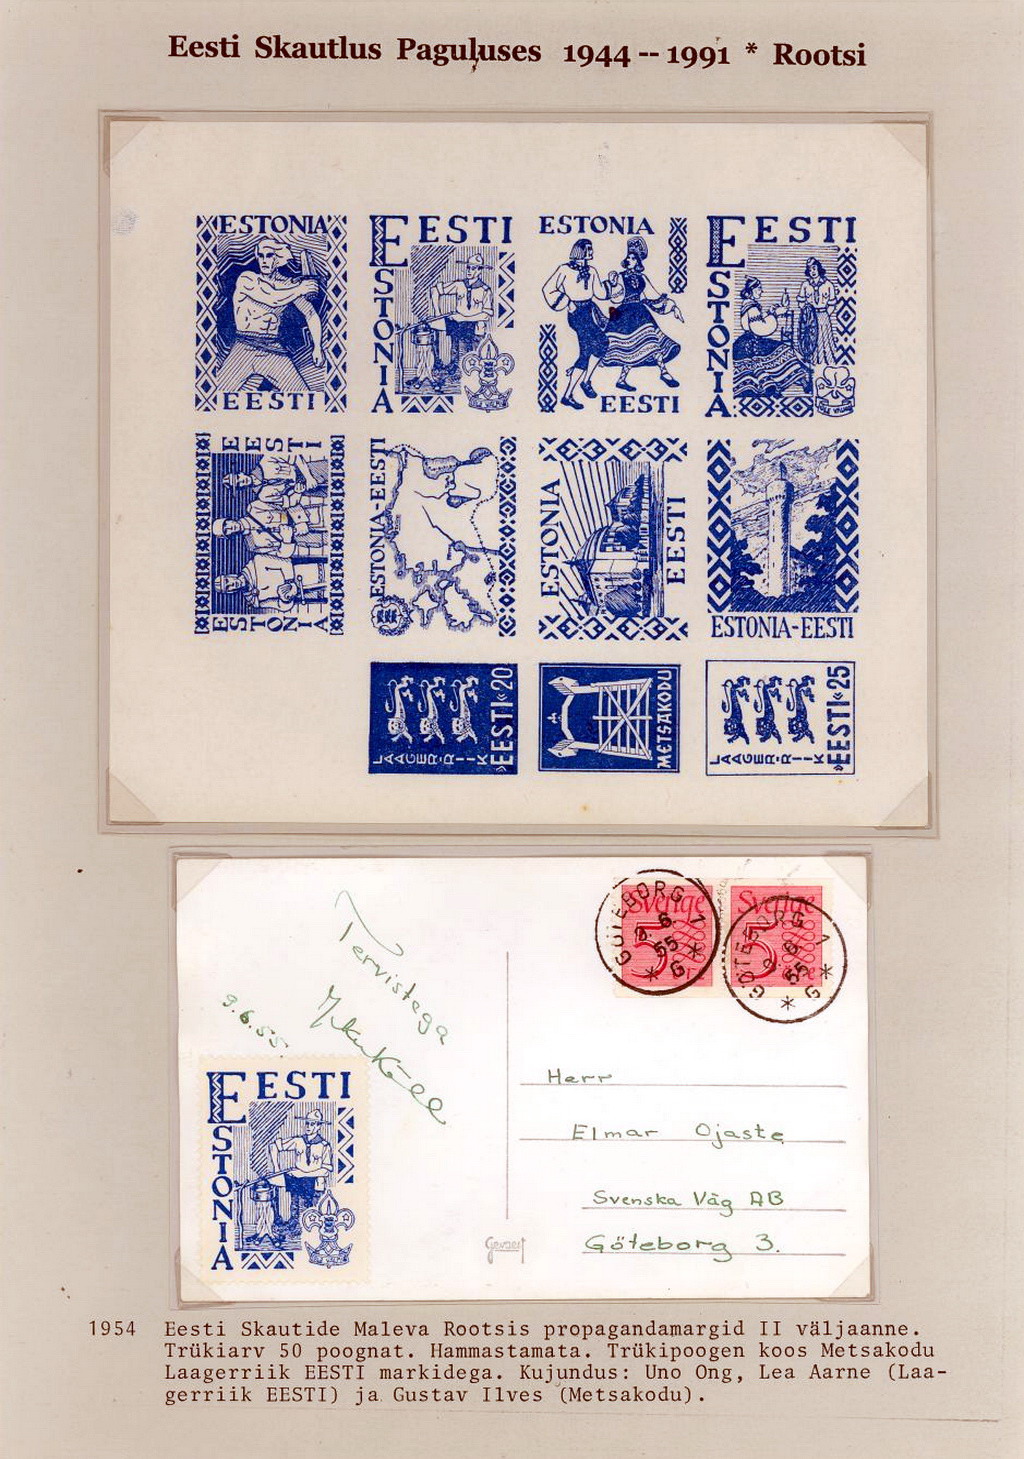 Eesti Skautlus Paguluses 1944 -- 1991 * Rootsi
ESTONIA
EESTI
EESTI
ESTONIA
ESTONIA
EESTI
EESTI
ESTONIA
EESTI
ESTONIA
ESTONIA-EESTI
ESTONIA
EESTI
ESTONIA-EESTI
LAAGER-RIIK
»EESTI«20
METSAKODU
LAAGER-RIIK
»EESTI«25
Tervistega
9.6.55.
EESTI
ESTONIA
Sverige
5
öre
Sverige
5
öre
GÖTEBORG 7
9.6.
55
* G *
GÖTEBORG 7
9.6.
55
* G *
Herr
Elmar Ojaste
Svenska Väg AB
Göteborg 3.
Gevaert
1954 Eesti Skautide Maleva Rootsis propagandamargid II väljaanne.
Trükiarv 50 poognat. Hammastamata. Trükipoogen koos Metsakodu
Laagerriik EESTI markidega. Kujundus: Uno Ong, Lea Aarne (Laa-
gerriik EESTI) ja Gustav Ilves (Metsakodu).